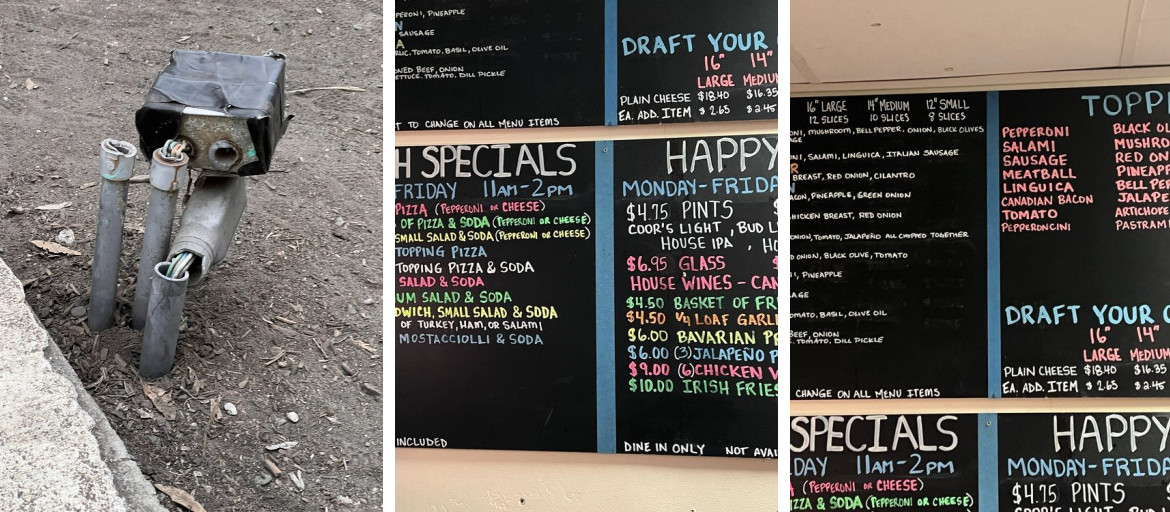 PERONI, PINEAPPLE
SAUSAGE
TOMATO, BASIL, OLIVE OIL
ONED BEEF, ONION
TOMATO, DILL PICKLE
T TO CHANGE ON ALL MENU ITEMS
DRAFT YOUR
16" 14"
LARGE MEDIUM
PLAIN CHEESE $18.40 $16.35
EA. ADD. ITEM $2.65 $2.45
H SPECIALS
FRIDAY 11AM-2PM
PIZZA (PEPPERONI OR CHEESE)
OF PIZZA & SODA (PEPPERONI OR CHEESE)
SMALL SALAD & SODA (PEPPERONI OR CHEESE)
TOPPING PIZZA
TOPPING PIZZA & SODA
SALAD & SODA
UM SALAD & SODA
DWICH, SMALL SALAD & SODA
OF TURKEY, HAM, OR SALAMI
MOSTACCIOLLI & SODA
INCLUDED
HAPPY
MONDAY-FRIDA
$4.75 PINTS
COOR'S LIGHT, BUD L
HOUSE IPA , HO
$6.95 GLASS
HOUSE WINES - CAN
$4.50 BASKET OF FRI
$4.50 1/4 LOAF GARLI
$6.00 BAVARIAN PR
$6.00 (3) JALAPEÑO P
$9.00 (6) CHICKEN W
$10.00 IRISH FRIES
DINE IN ONLY NOT AVAI
16" LARGE 14" MEDIUM 12" SMALL
12 SLICES 10 SLICES 8 SLICES
ONI, MUSHROOM, BELL PEPPER, ONION, BLACK OLIVES
AGE
ONI, SALAMI, LINGUICA, ITALIAN SAUSAGE
BREAST, RED ONION, CILANTRO
ACON, PINEAPPLE, GREEN ONION
HICKEN BREAST, RED ONION
ONION, TOMATO, JALAPEÑO ALL CHOPPED TOGETHER
D ONION, BLACK OLIVE, TOMATO
NI, PINEAPPLE
AGE
OMATO, BASIL, OLIVE OIL
BEEF, ONION
TOMATO, DILL PICKLE
CHANGE ON ALL MENU ITEMS
TOPPI
PEPPERONI BLACK OL
SALAMI MUSHRO
SAUSAGE RED ON
MEATBALL PINEAPP
LINGUICA BELL PEP
CANADIAN BACON JALAPE
TOMATO ARTICHOKE
PEPPERONCINI PASTRAMI
DRAFT YOUR C
16" 14"
LARGE MEDIUM
PLAIN CHEESE $18.40 $16.35
EA. ADD. ITEM $2.65 $2.45
SPECIALS
DAY 11AM-2PM
(PEPPERONI OR CHEESE)
IZZA & SODA (PEPPERONI OR CHEESE)
HAPPY
MONDAY-FRIDA
$4.75 PINTS